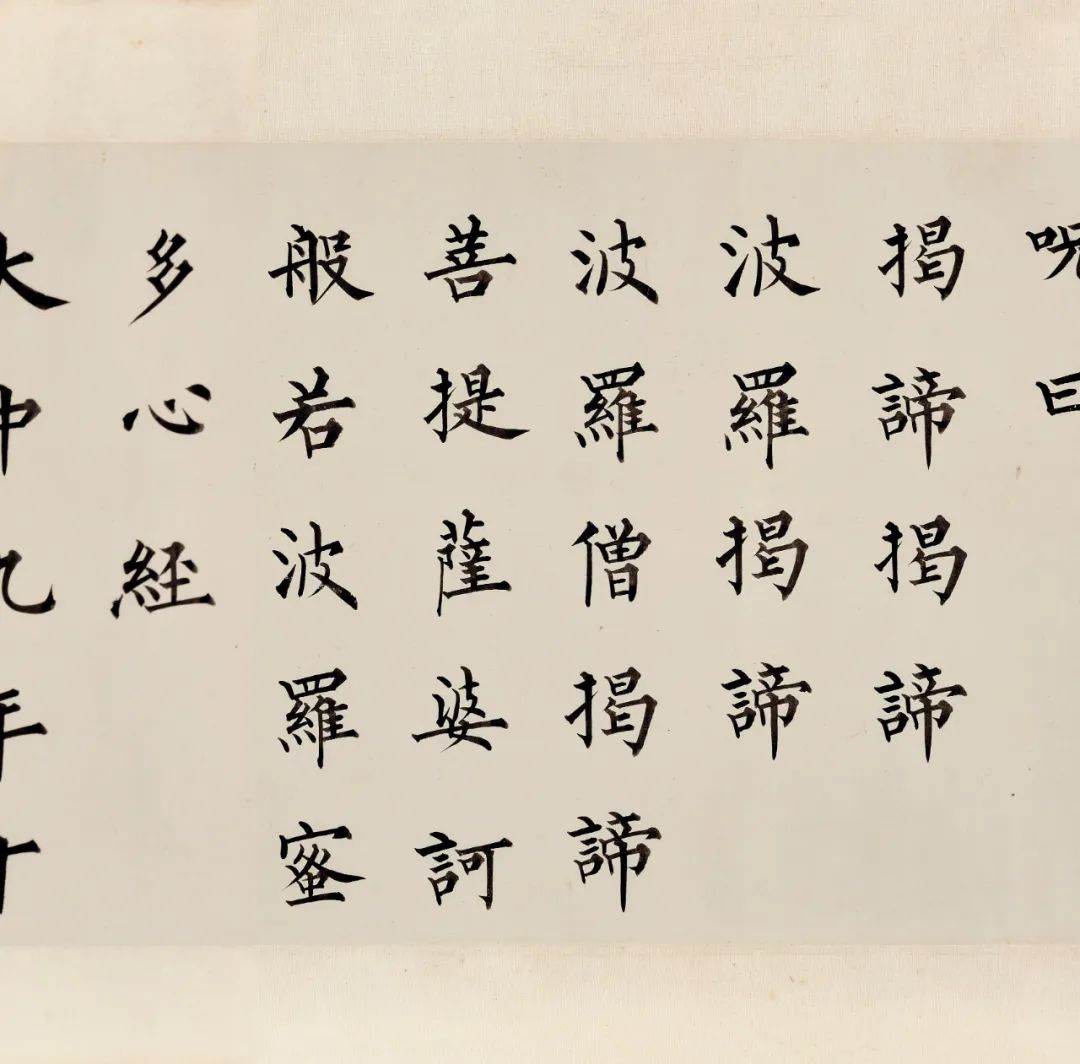 呪曰
揭諦揭諦
波羅揭諦
波羅僧揭諦
菩提薩婆訶
般若波羅蜜
多心経
大中九年十